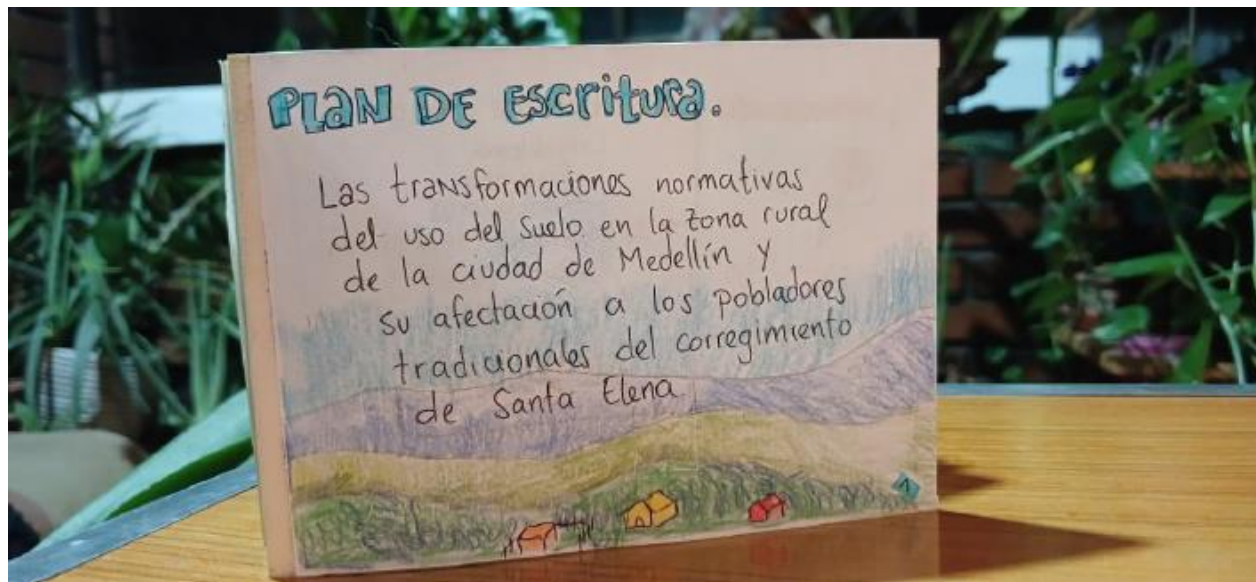 PLaN DE Escritura.
Las traNsformaciones normativas
del uso del suelo en la zona rural
de la ciudad de Medellín y
su afectación a los pobladores
tradicionales del corregimiento
de Santa Elena
1